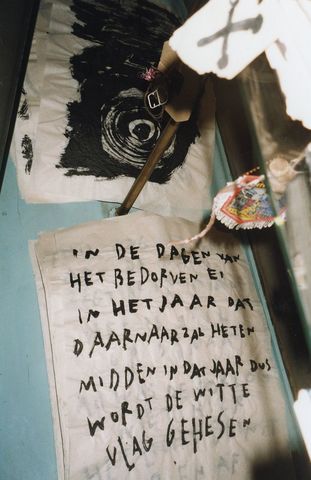 IN DE DAGEN VAN
HET BEDORVEN EI
IN HET JAAR DAT
DAARNAAR ZAL HETEN
MIDDEN IN DAT JAAR DUS
WORDT DE WITTE
VLAG GEHESEN